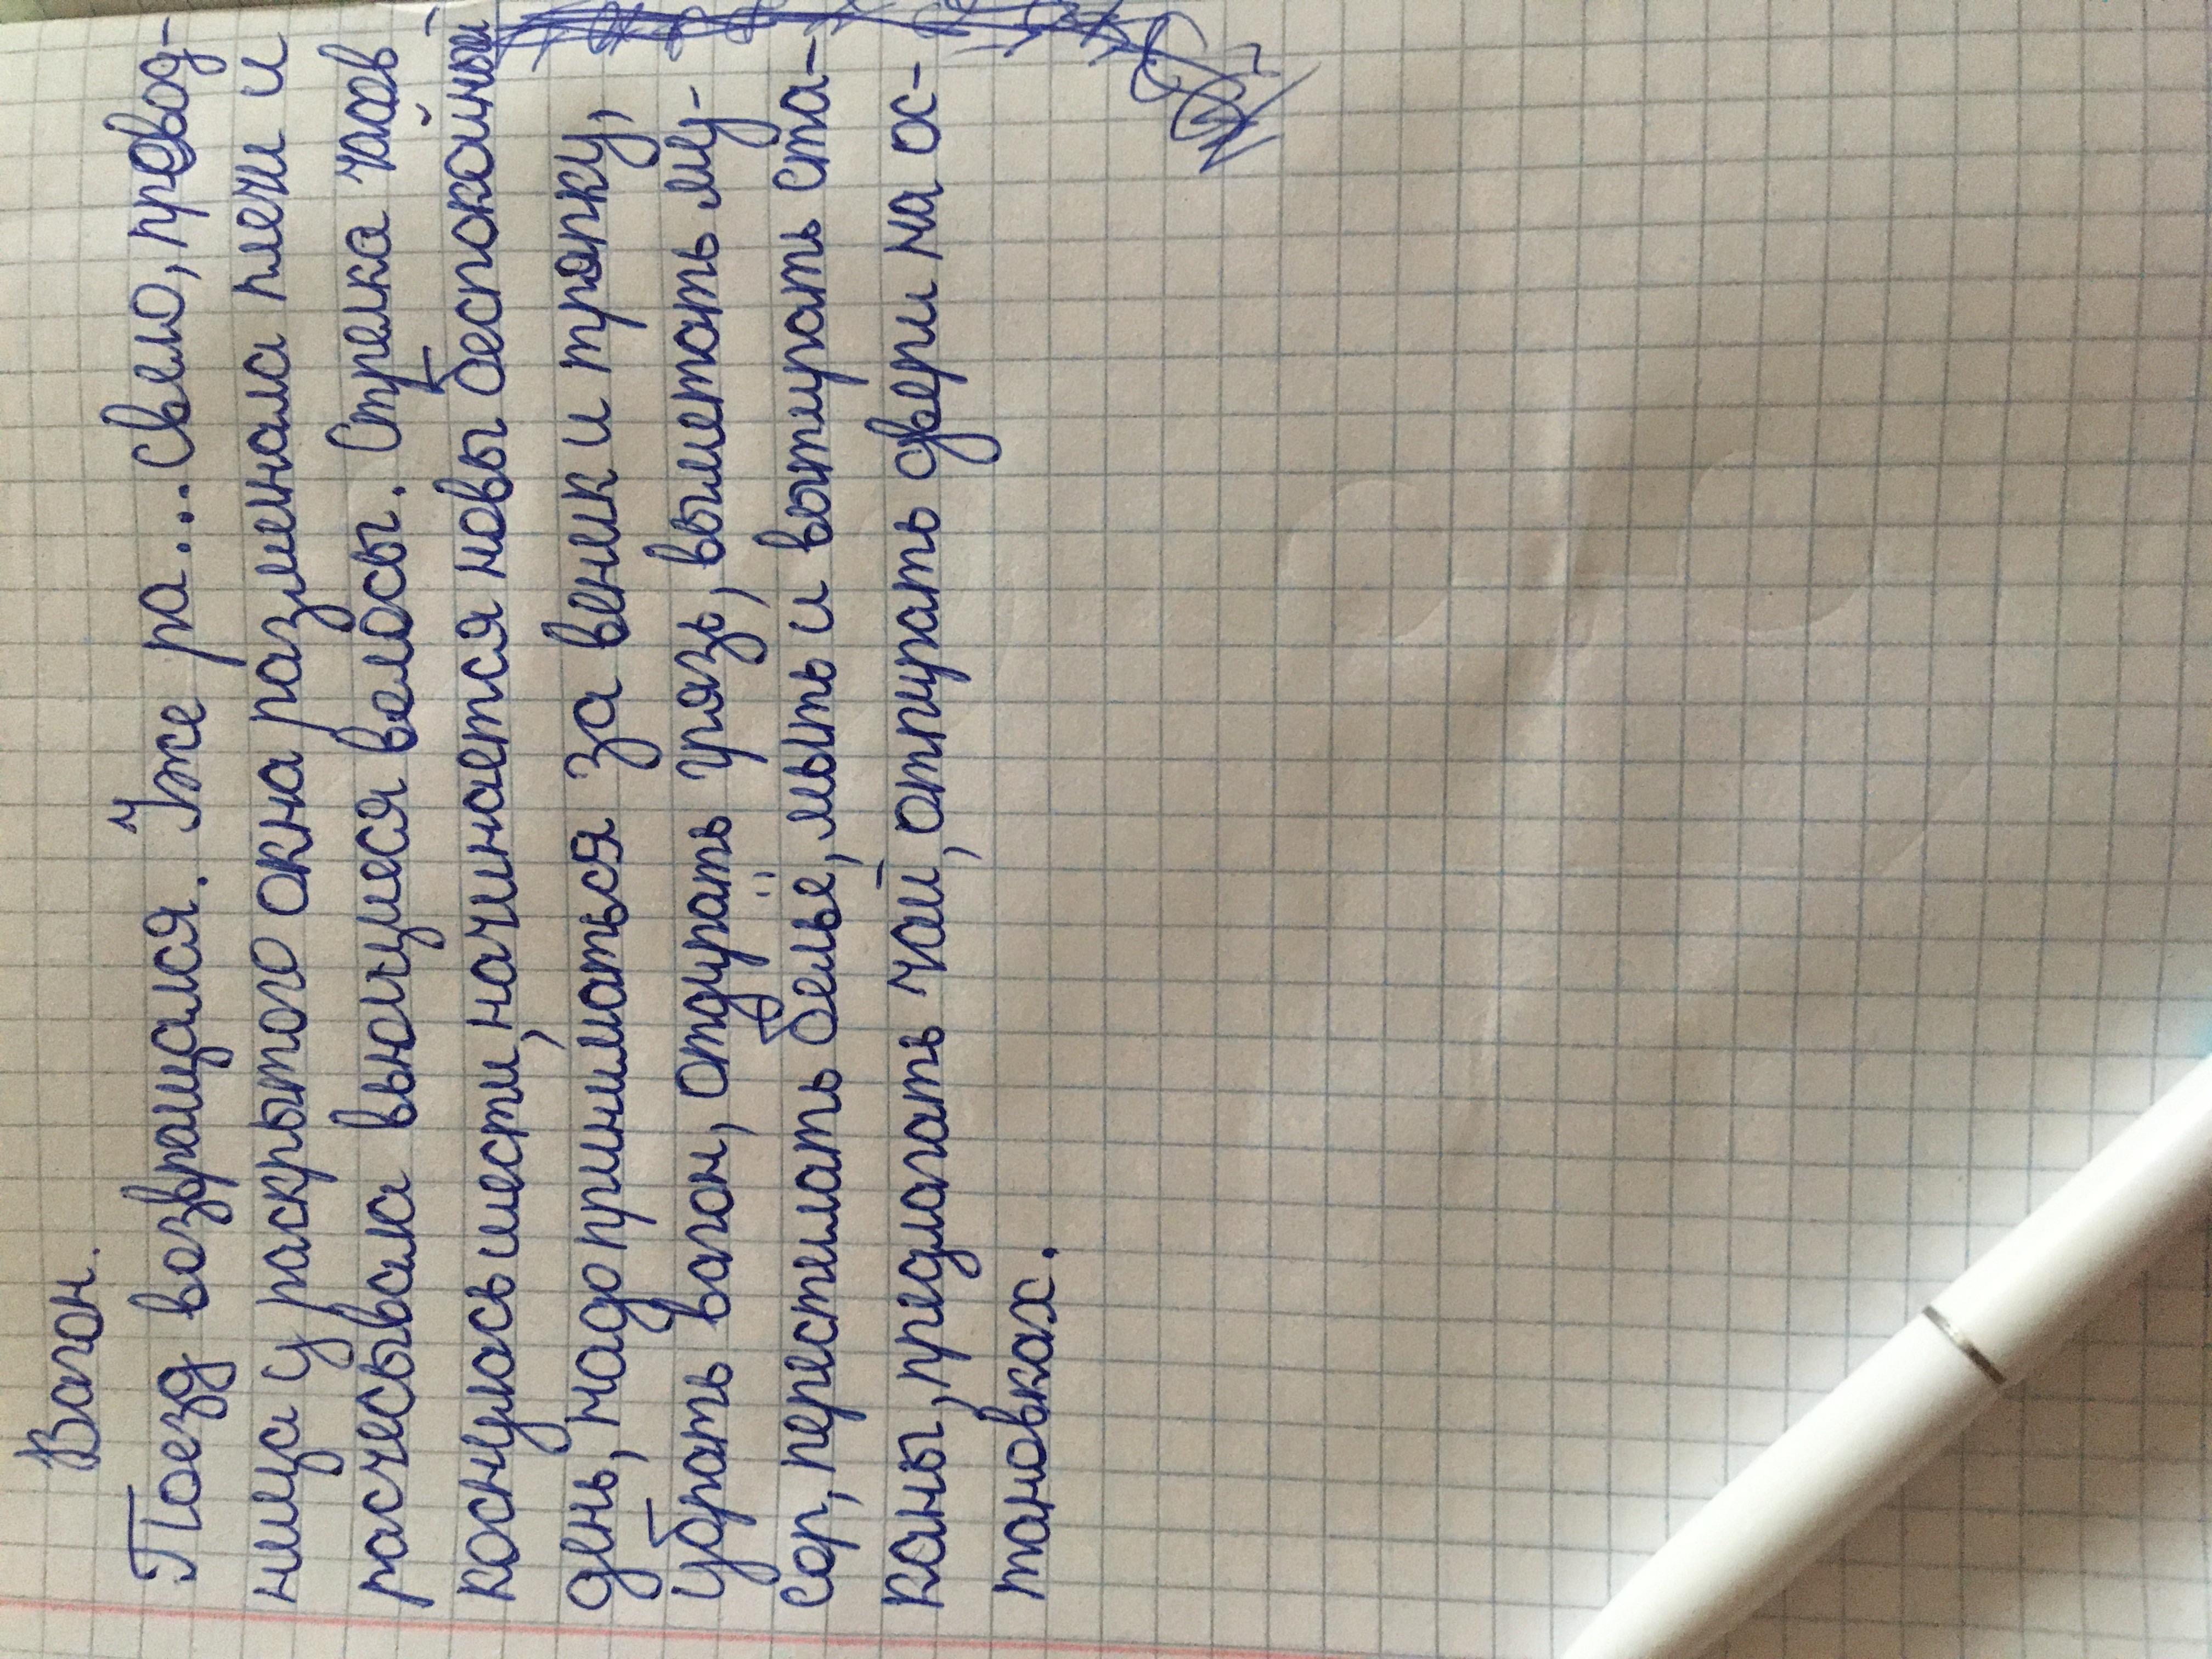 Вагон.
Поезд возвращался. Уже ра...свело, провод-
ница у раскрытого окна разменала плечи и
расчесывала вьющиеся велосы. Стрелка часов
коснулось шести, начинается новы беспокойной
день, надо приниматься за веник и тряпку,
убрать вагон, отдирать грязь, выметать му-
сор, перестилать бельё, мыть и вытирать ста-
каны, предлагать чай, отпирать двери на ос-
тановках.